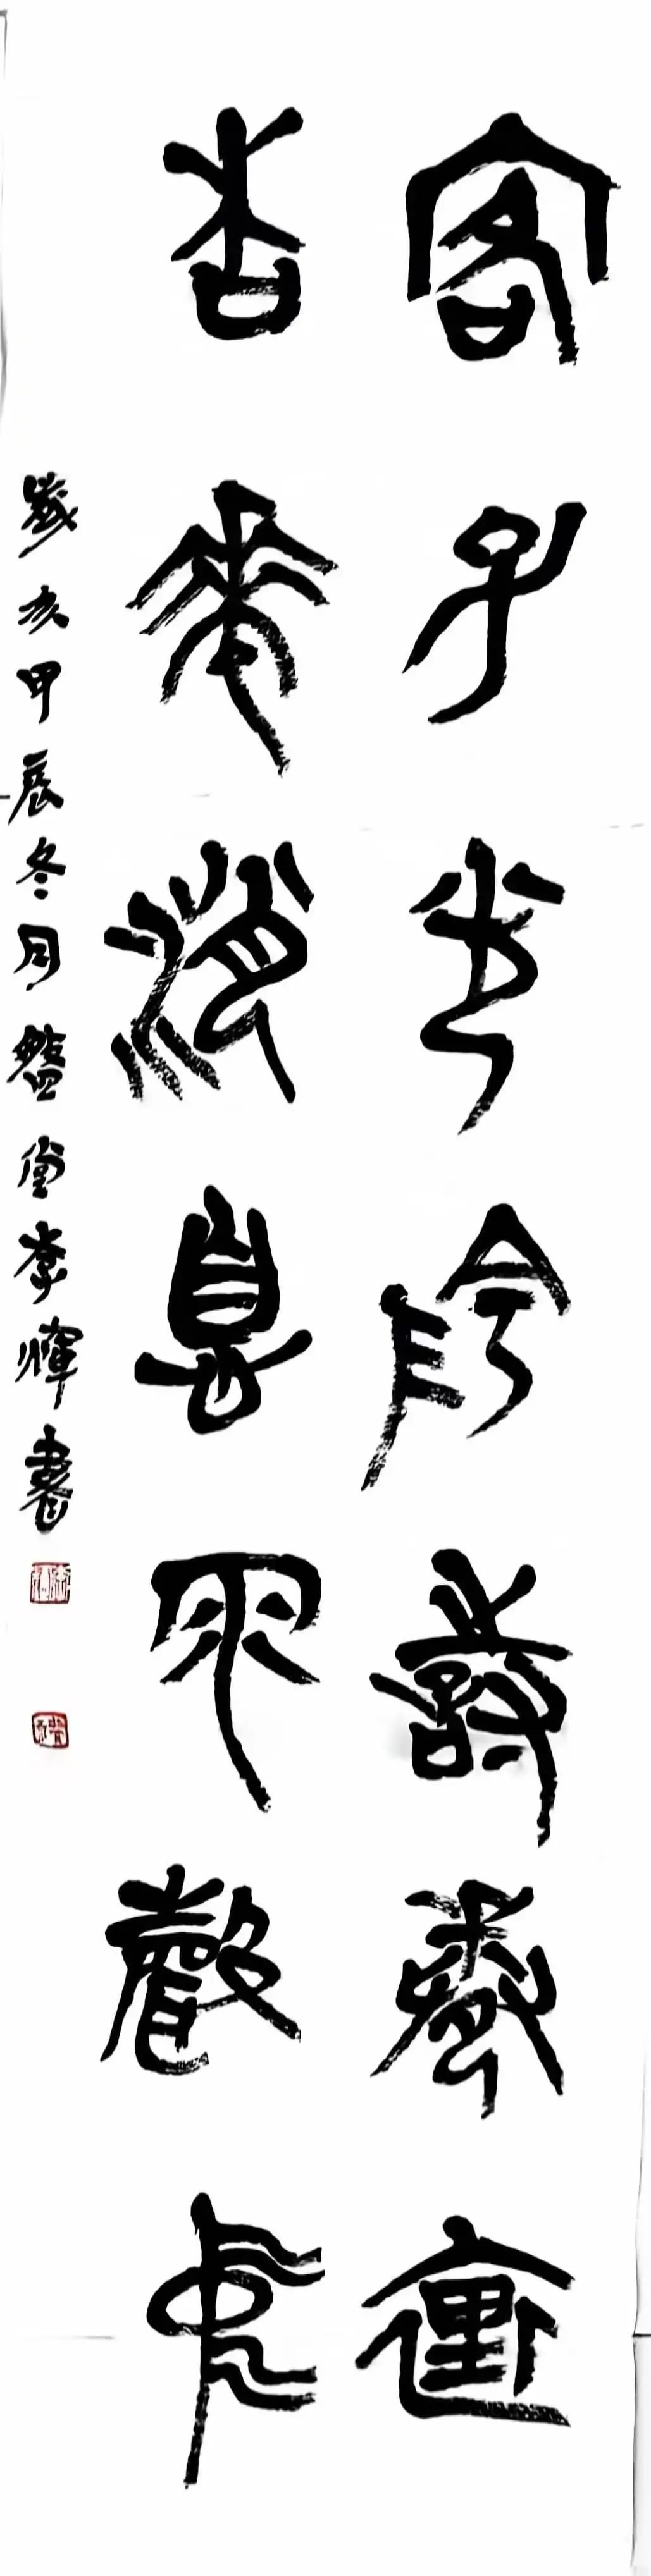 客子光陰詩卷裏
杏花消息雨聲中
歲次甲辰冬月李輝書